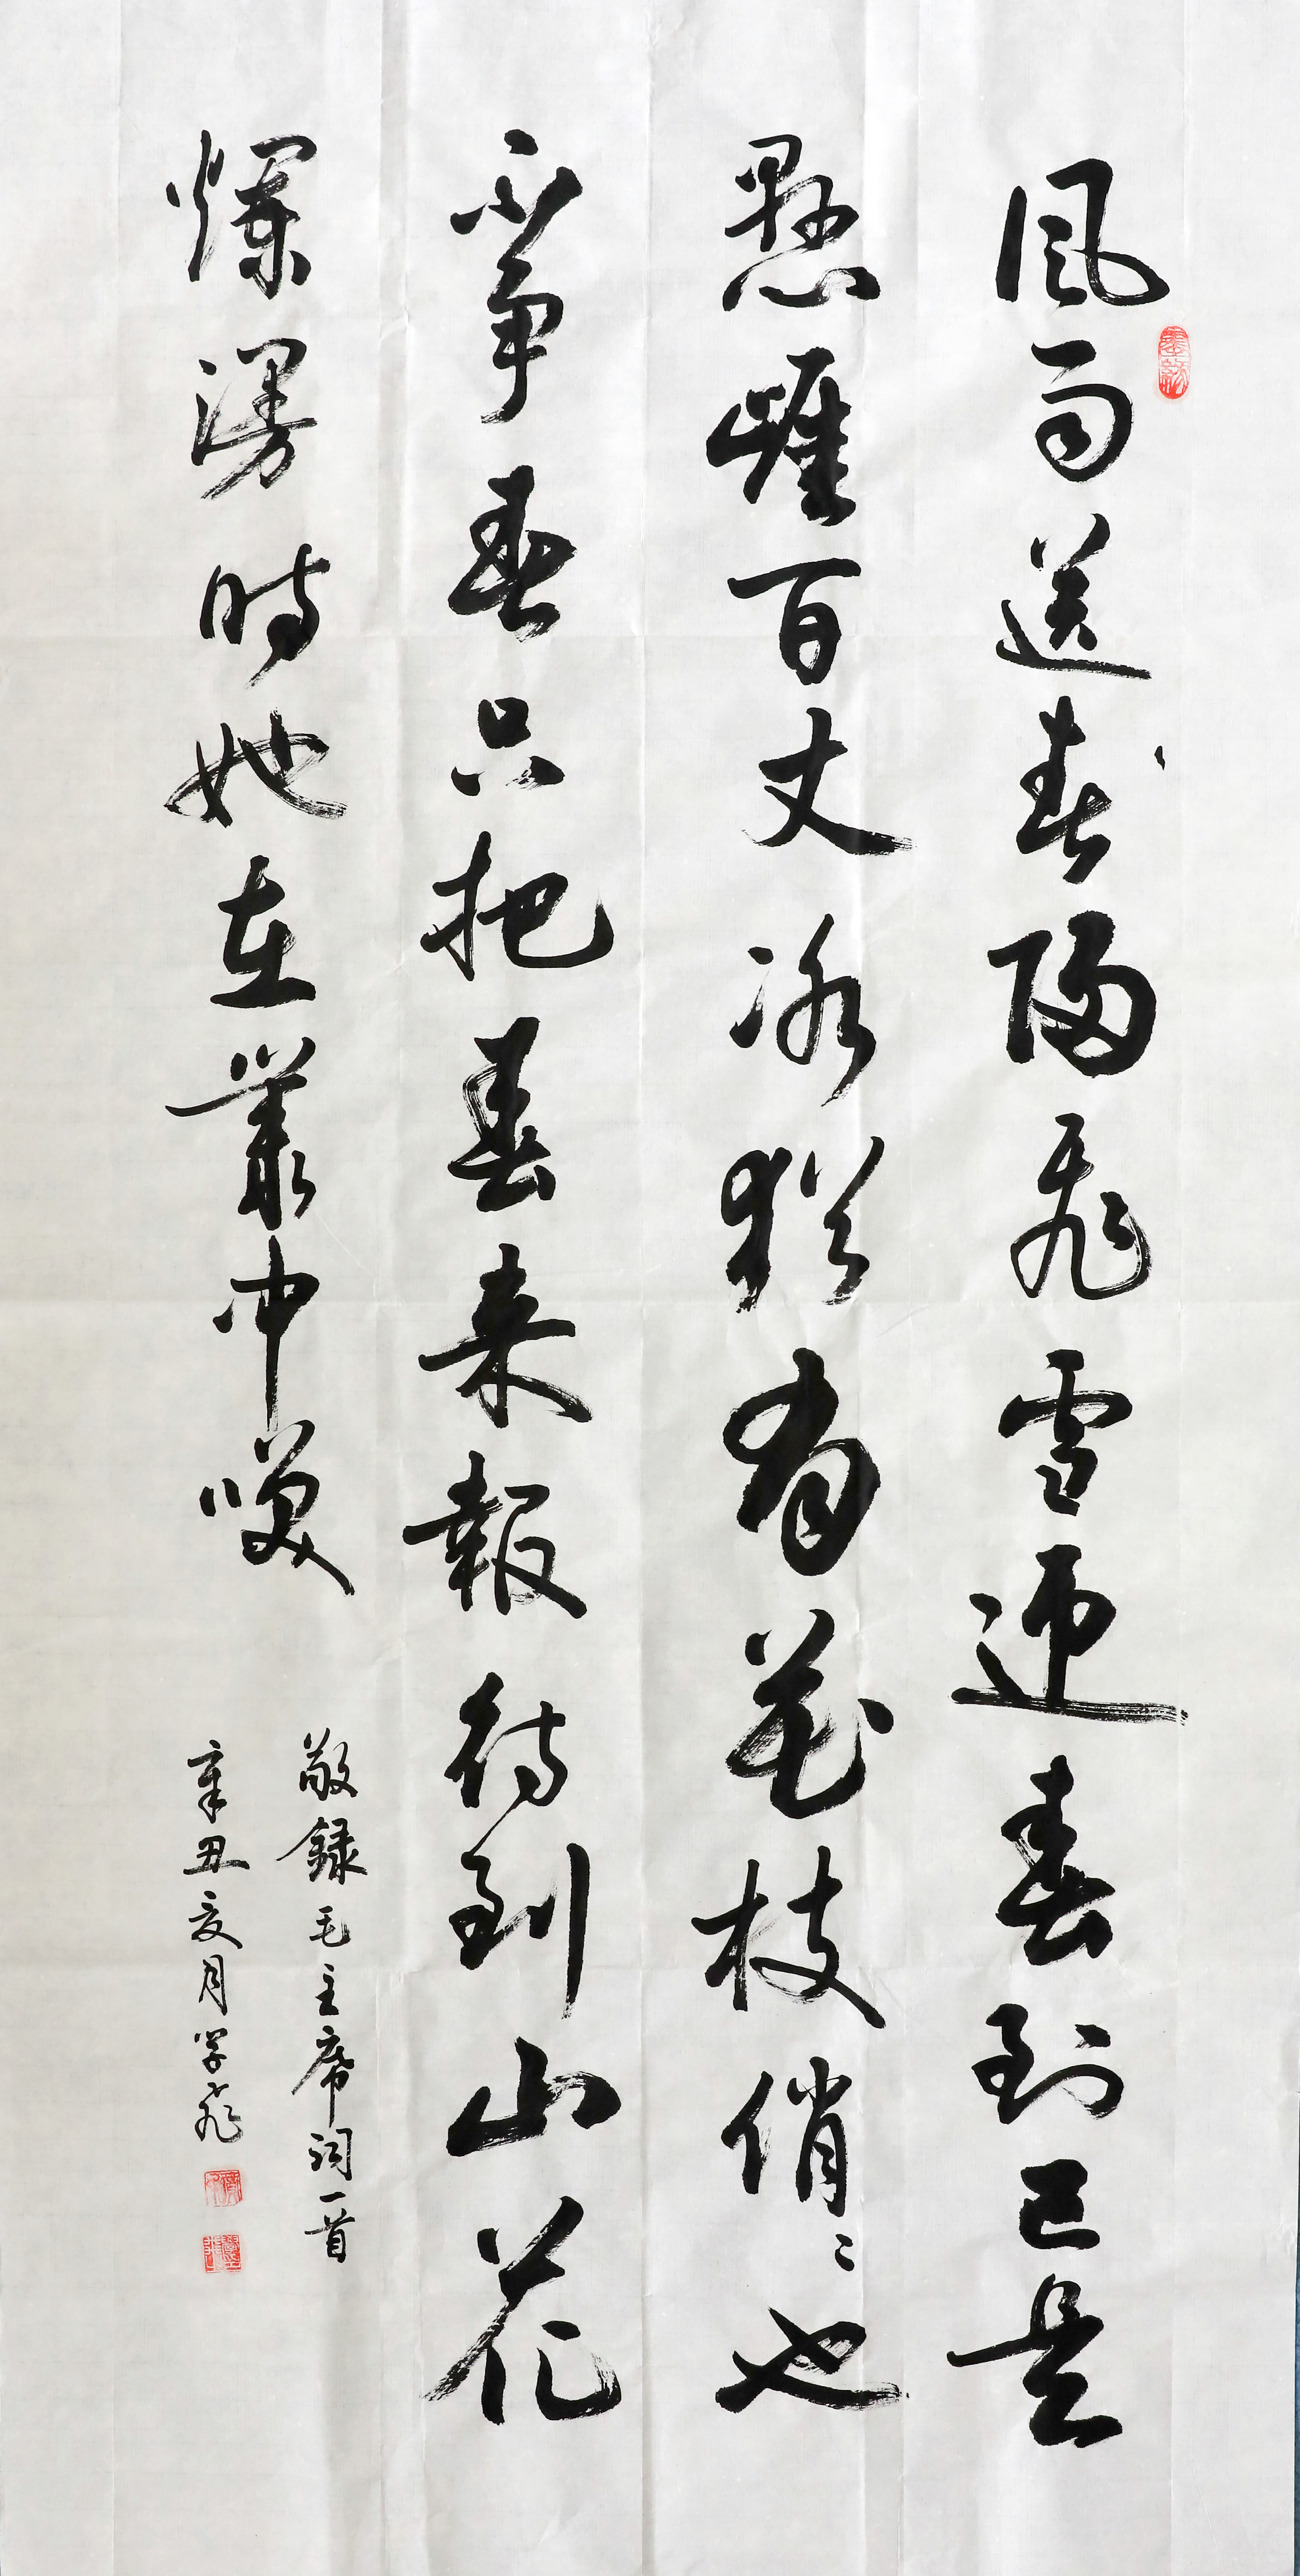 風雨送春歸飛雪迎春到已是
懸崖百丈冰猶有花枝俏〻也
不争春只把春来報待到山花
爛漫時她在叢中笑
敬録毛主席詞一首
辛丑夏月学飛